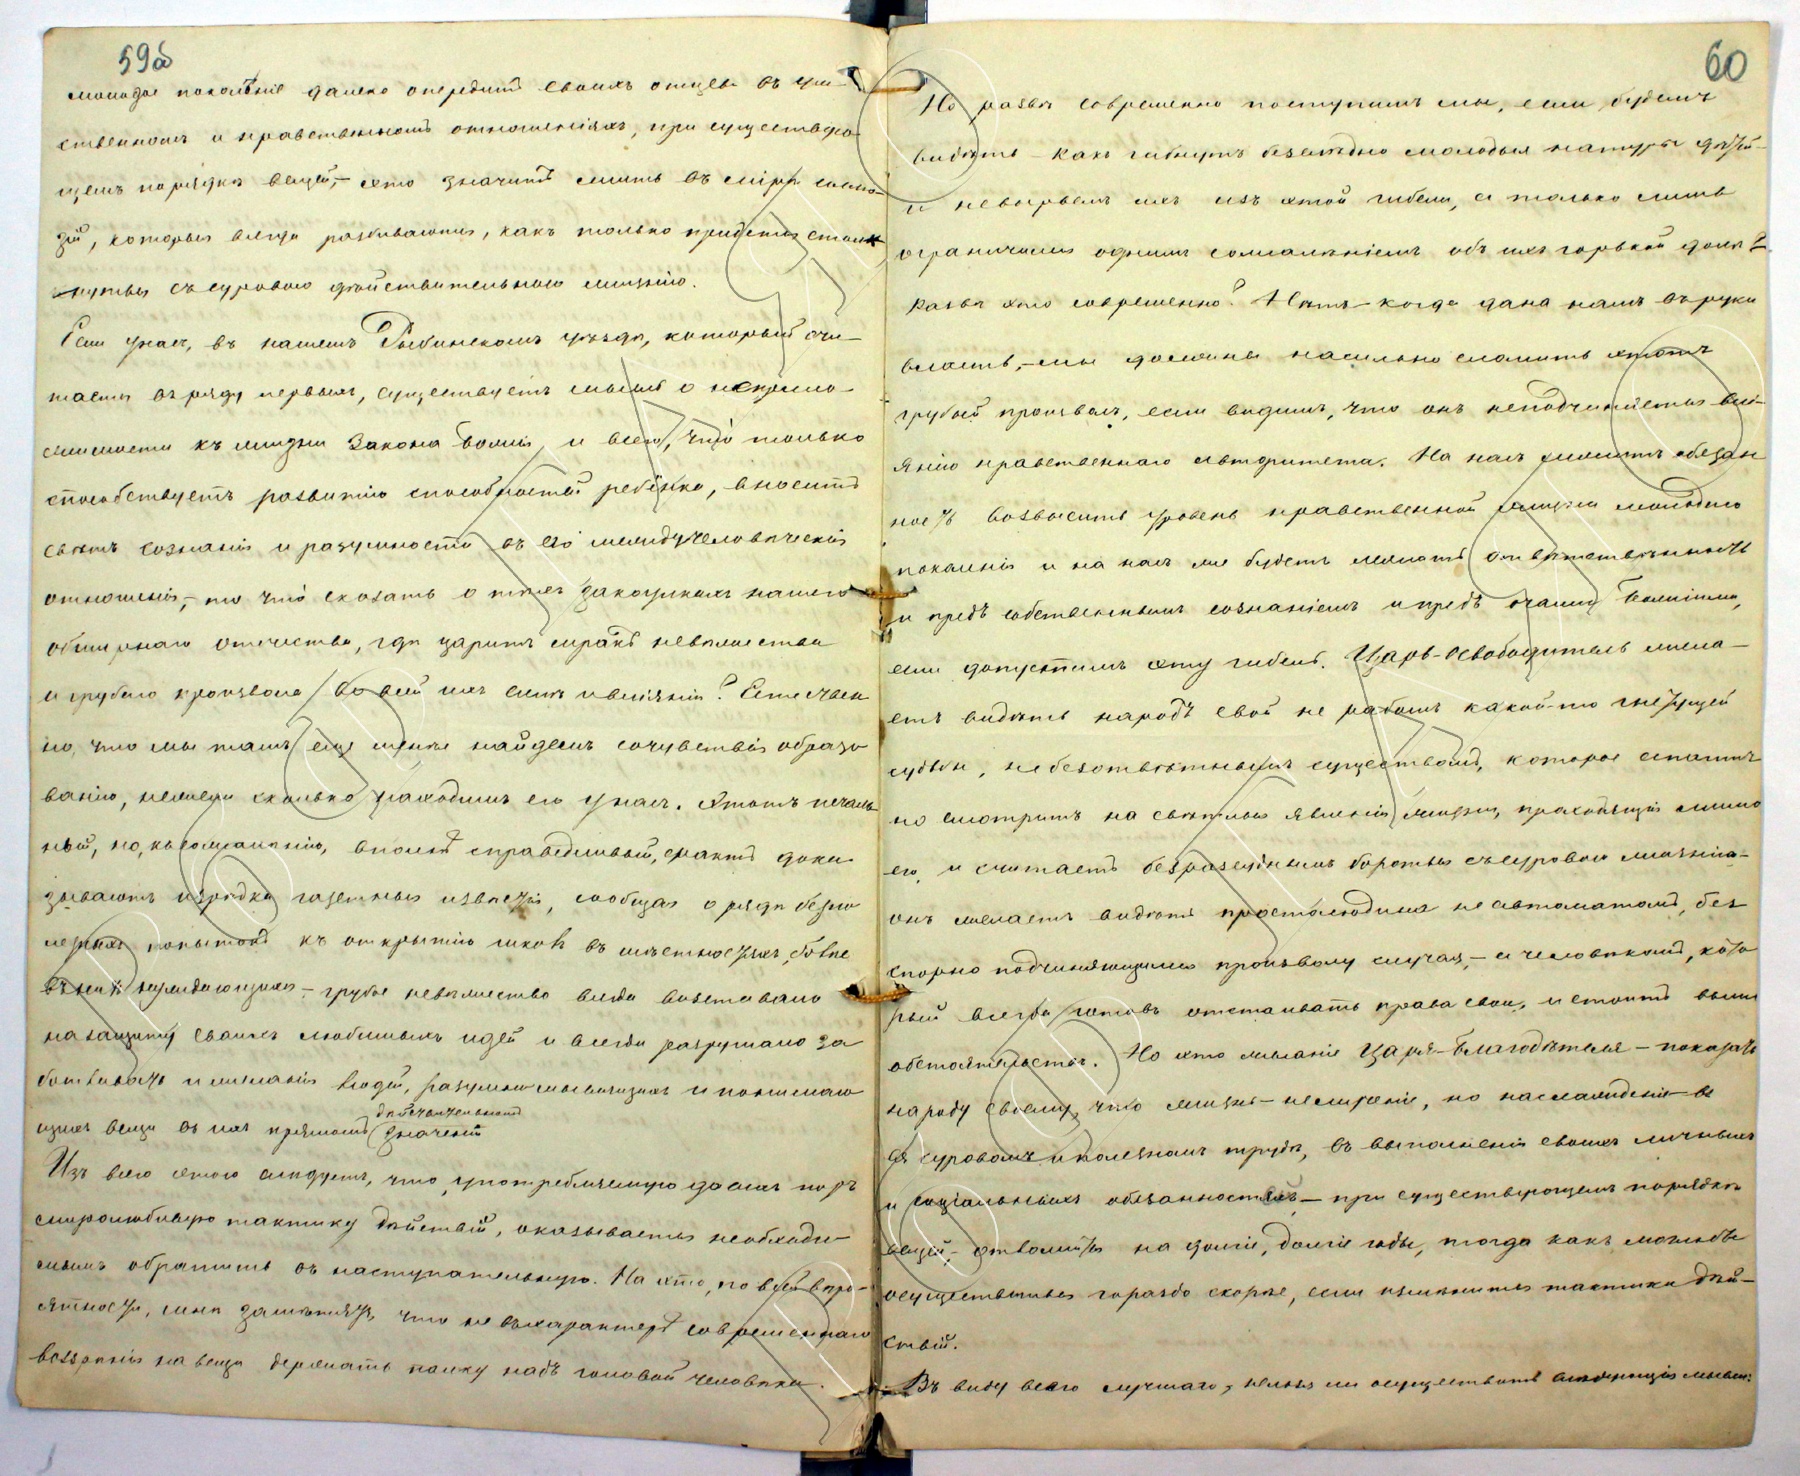 59об
молодое поколѣніе далеко опередитъ своихъ отцевъ въ ум-
ственномъ и нравственномъ отношеніяхъ, при существую-
щемъ порядкѣ вещей, – это значитъ жить въ мірѣ иллю-
зій, которыя всегда разбиваются, какъ только придется столк-
нуться съ суровою дѣйствительною жизнію.
Если у насъ, въ нашемъ Рыбинскомъ уѣздѣ, который счи-
таетъ въ ряду первыхъ, существуетъ мысль о непримѣ-
нимости къ жизни Закона Божія, и всего, что только
способствуетъ развитію способностей ребенка, вноситъ
свѣтъ сознанія и разумности въ его междучеловѣческія
отношенія, – то что сказать о тѣхъ закоулкахъ нашего
обширнаго отечества, гдѣ царитъ мракъ невѣжества
и грубаго произвола во всей ихъ силѣ и вліяніи? Естествен
но, что мы тамъ еще менѣе найдемъ сочувствія образо
ванію, нежели сколько находимъ его у насъ. Этотъ печаль
ный, но, къ сожалѣнію, вполнѣ справедливый, фактъ дока
зываютъ изрѣдка газетныя извѣстія, сообщая о рядѣ безпо
лезныхъ попытокъ къ открытію школъ въ мѣстностяхъ, болѣе
въ нихъ нуждающихся – грубое невѣжество всегда возставало
на защиту своихъ любимыхъ идей и всегда разрушало за
ботливость и желанія людей, разумно мыслящихъ и понимаю
щихъ вещи въ ихъ прямомъ дѣйствительномъ значеніи
Изъ всего этого слѣдуетъ, что употребляемую до сихъ поръ
миролюбивую тактику дѣйствій, оказывается необходи-
мымъ обратить въ наступательную. На это, по всей вѣро-
ятности, мнѣ замѣтятъ, что не въ характерѣ современнаго
воззрѣнія на вещи держать палку надъ головой человѣка.
60
Но развѣ современно поступимъ мы, если будемъ
видѣть – какъ гибнутъ безслѣдно молодыя натуры дѣтей –
и невырвемъ ихъ изъ этой гибели, а только лишь
ограничимся однимъ сожалѣніемъ объ ихъ горькой долѣ?
Развѣ это современно? Нѣтъ – когда дана намъ въ руки
власть, – мы должны насильно сломить этотъ
грубый произволъ, если видимъ, что онъ неподчиняется влі-
янію нравственнаго авторитета. На насъ лежитъ обязан
ность возвысить уровень нравственной жизни молодаго
поколенія и на насъ же будетъ лежать отвѣтственность
и предъ собственнымъ сознаніемъ и предъ очами Божіими,
если допустимъ эту гибель. Царь-Освободитель жела-
етъ видѣть народъ свой не рабомъ какой-то гнетущей
судьбы, не безотвѣтнымъ существомъ, которое апатич
но смотритъ на свѣтлыя явленія жизни, проходящія мимо
его, и считаетъ безразличнымъ бороться съ суровою жизнію –
онъ желаетъ видѣть простолюдина не автоматомъ, без
спорно подчиняющимся произволу случая, – а человѣкомъ, кото
рый всегда готовъ отстаивать права свои, и стоитъ выше
обстоятельствъ. Но это желаніе Царя-Благодѣтеля – показать
народу своему, что жизнь – не мученіе, но наслажденіе – в
въ суровомъ и полезномъ трудѣ, въ выполненіи своихъ личныхъ
и соціальныхъ обязанностей, – при существующемъ порядкѣ
вещей, – отложится на долгіе, долгіе годы, тогда какъ можно бы
осуществиться гораздо скорѣе, если измѣнится тактика дѣй-
ствій.
Въ виду всего лучшаго, нельзя ли осуществить слѣдующія мысли: